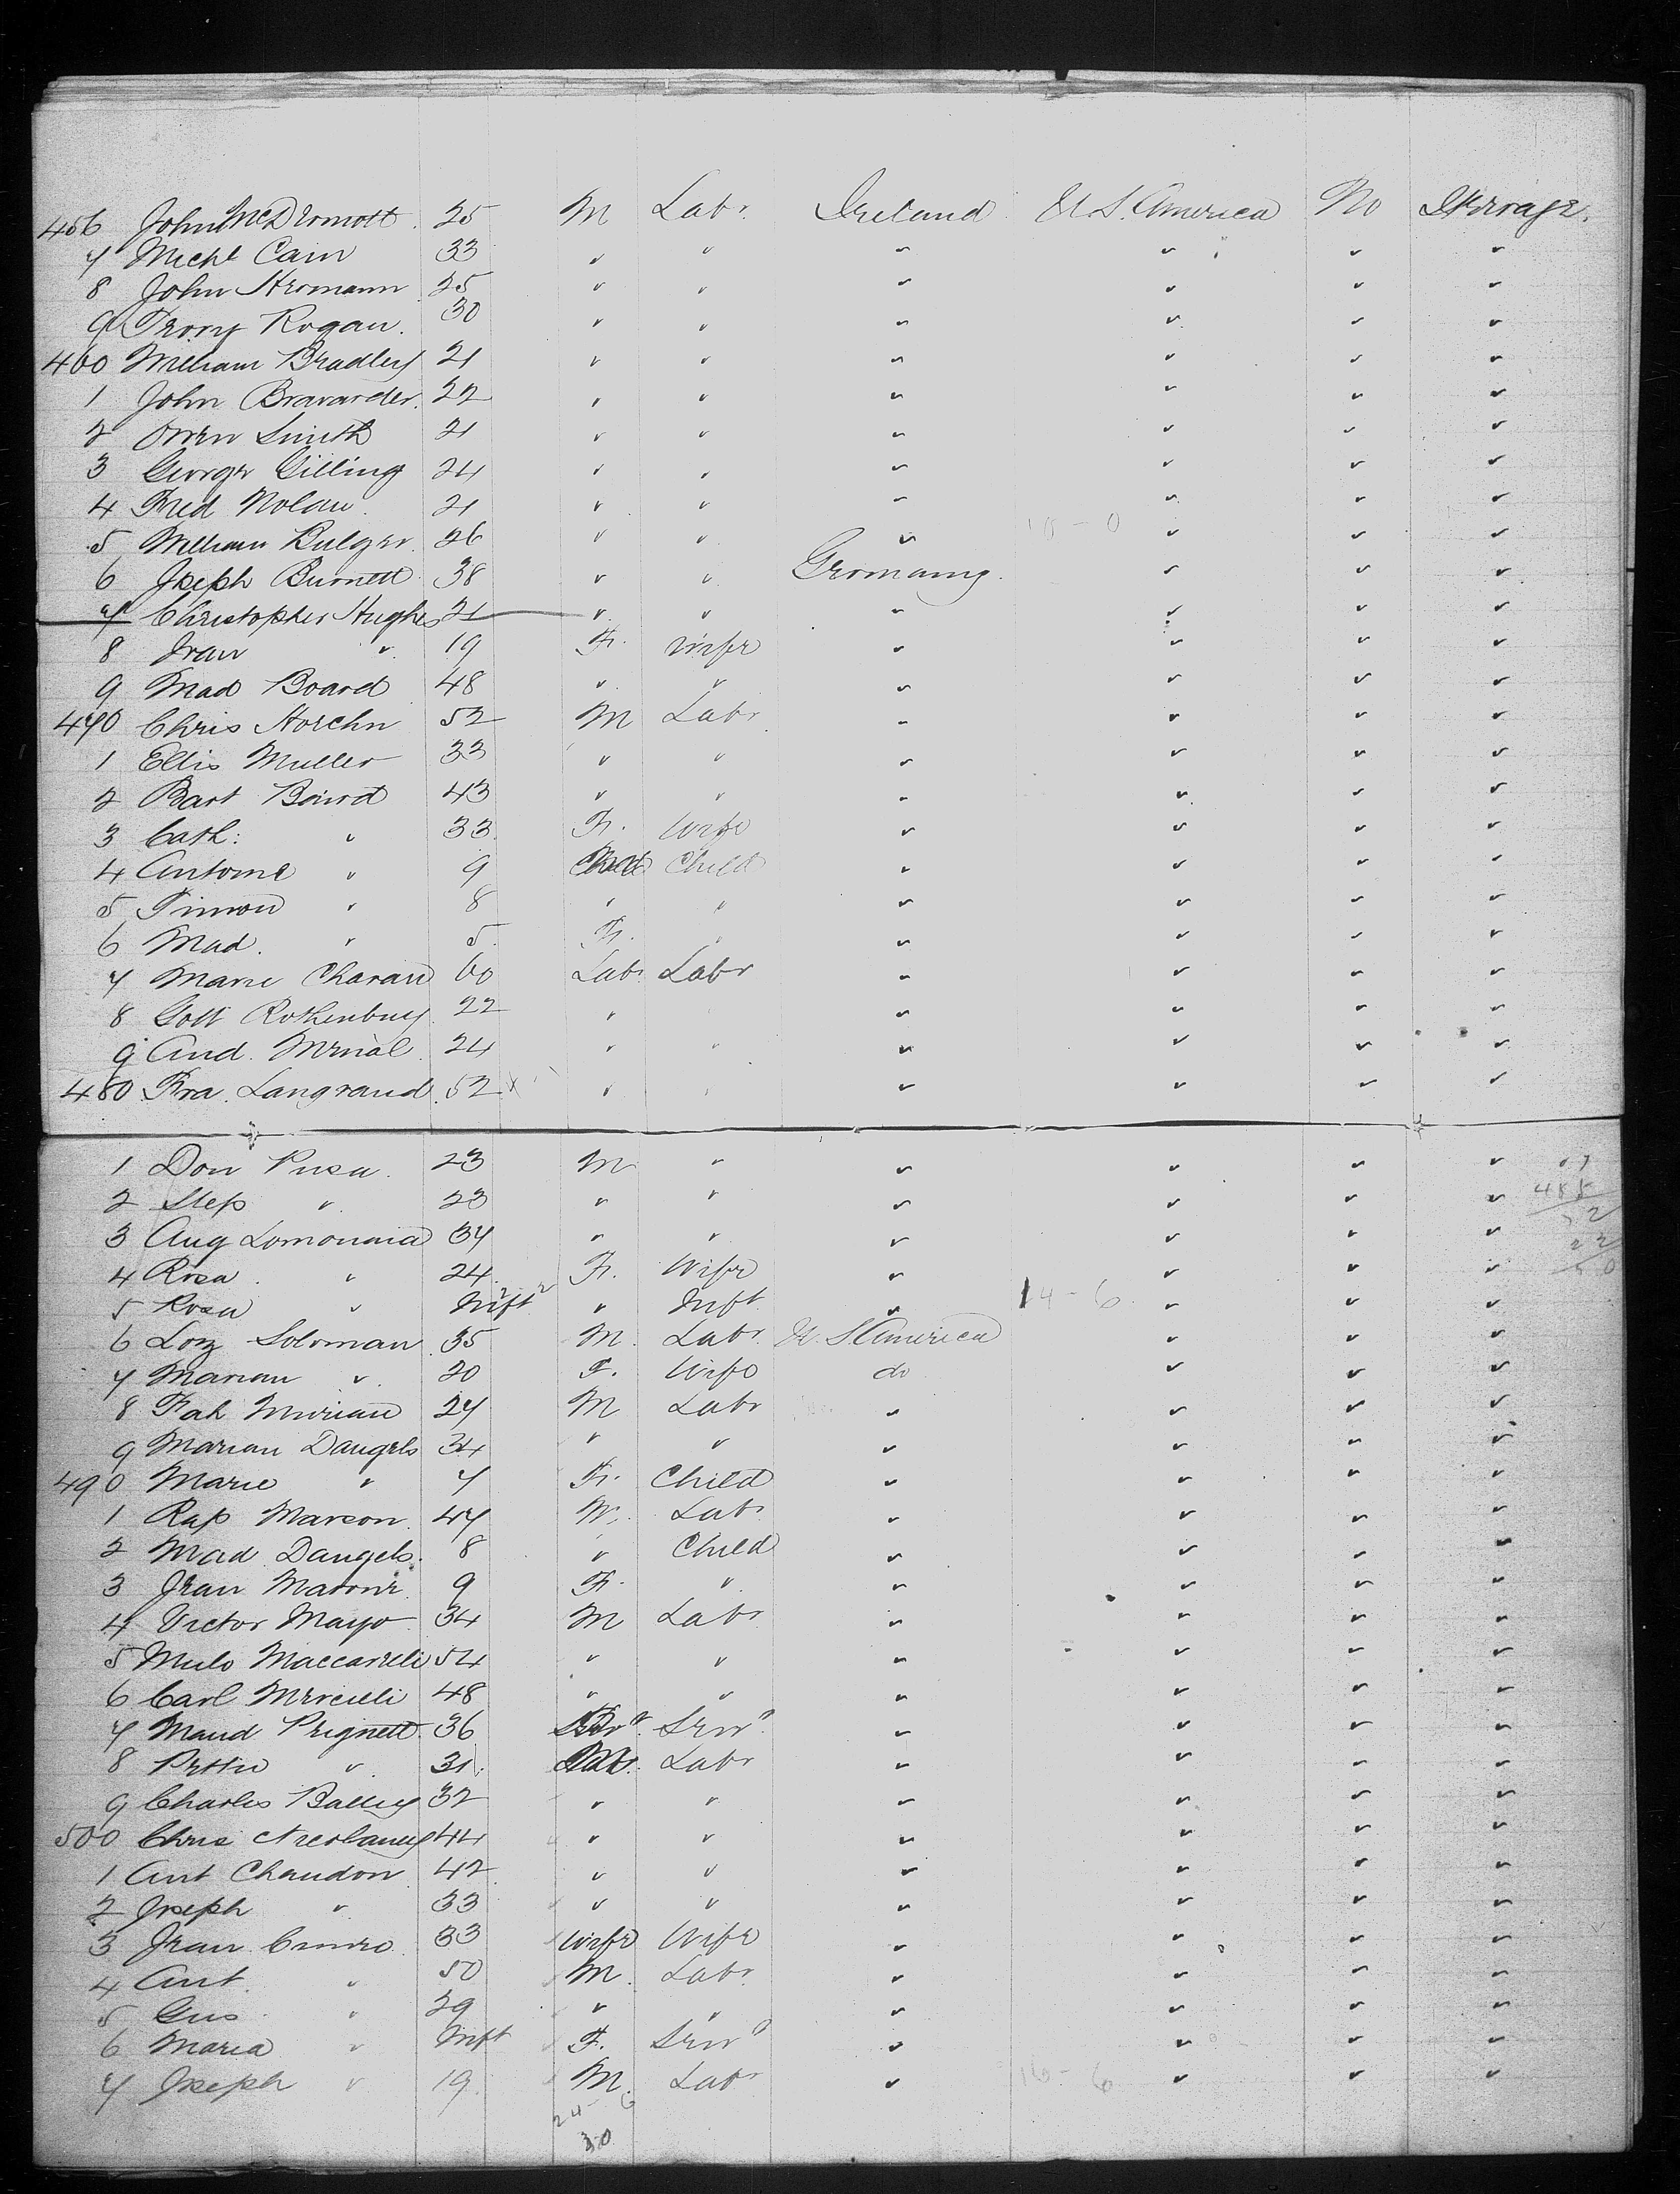 456 John McDermott 25 M Labr Ireland U.S. America No Steerage.
7 Michl Cain 33 " " " " " "
8 John Hermann 25 " " " " " "
9 Perry Rogan 30 " " " " " "
460 William Bradley 21 " " " " " "
1 John Bravarder 22 " " " " " "
2 Owen Smith 21 " " " " " "
3 George Gilling 24 " " " " " "
4 Fred Nolan 21 " " " " " "
5 William Bulger 26 " " " " " "
6 Joseph Burnett 38 " " Germany " " "
7 Christopher Hughes 21 " " " " " "
8 Jean " 19 F. Wife " " " "
9 Mad Board 48 " " " " " "
470 Chris Horchn 52 M Labr " " " "
1 Ellis Muller 33 " " " " " "
2 Bart Baird 43 " " " " " "
3 Cath: " 33 F. Wife " " " "
4 Antoine " 9 Child " " " "
5 Simon " 8 " " " " " "
6 Mad. " 5 F. " " " " "
7 Marie Charau 60 Labr Labr " " " "
8 Gott Rothenbury 22 " " " " "
9 And. 24 " " " " " "
480 Fra. Langrand 52 " " " " " "
1 Don Pusa 23 M " " " " "
2 Step " 23 " " " " " "
3 Aug 34 " " " " " "
4 Rosa " 24 F. Wife " " " "
5 Rosa " Inft " Inft " 14-6 " " "
6 Loz Soloman 35 M. Labr U. S America " " "
7 Marian " 20 F. Wife do " " "
8 24 M Labr " " " "
9 Marian Daugels 34 " " " " " "
490 Marie " 7 F. Child " " " "
1 Rap Marson 47 M. Labr " " " "
2 Mad Daugels 8 " Child " " " "
3 Jean Masonr 9 F. " " " " "
4 Victor Mayo 34 M Labr " " " "
5 Mulo Maccarelli 54 " " " " " "
6 Carl Mercelli 48 " " " " " "
7 Maud Prignett 36 Servt " " " "
8 " 31 Labr " " " "
9 Charles Balley 32 " " " " " "
500 Chris 44 " " " " " "
1 Ant Chaudon 42 " " " " " "
2 Joseph " 33 " " " " " "
3 Jean 33 Wife Wife " " " "
4 Ant. " 50 M. Labr " " " "
5 Gus " 29 " " " " " "
6 Maria " Inft F. Servt " " " "
7 Joseph " 19 M. Labr " " " "
30